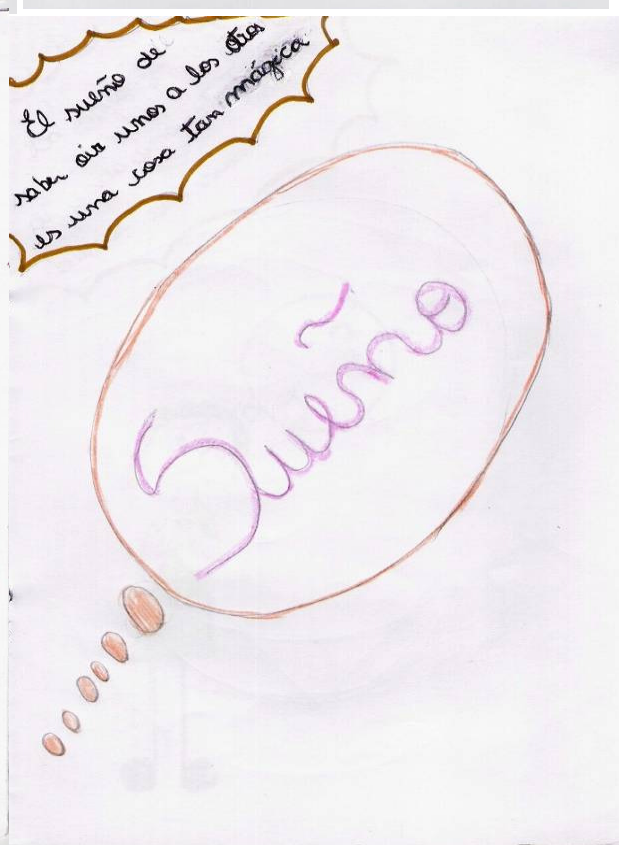 El sueño de
saber oir unos a los otros
es una cosa tan mágica
Sueño